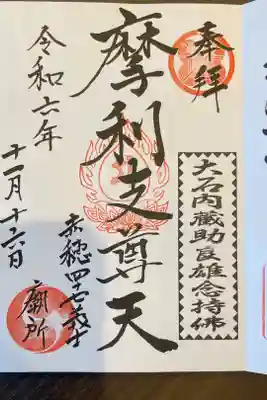 奉拝
大石内蔵助良雄念持佛
摩利支尊天
赤穂四十七義士
廟所
令和六年
十一月十六日